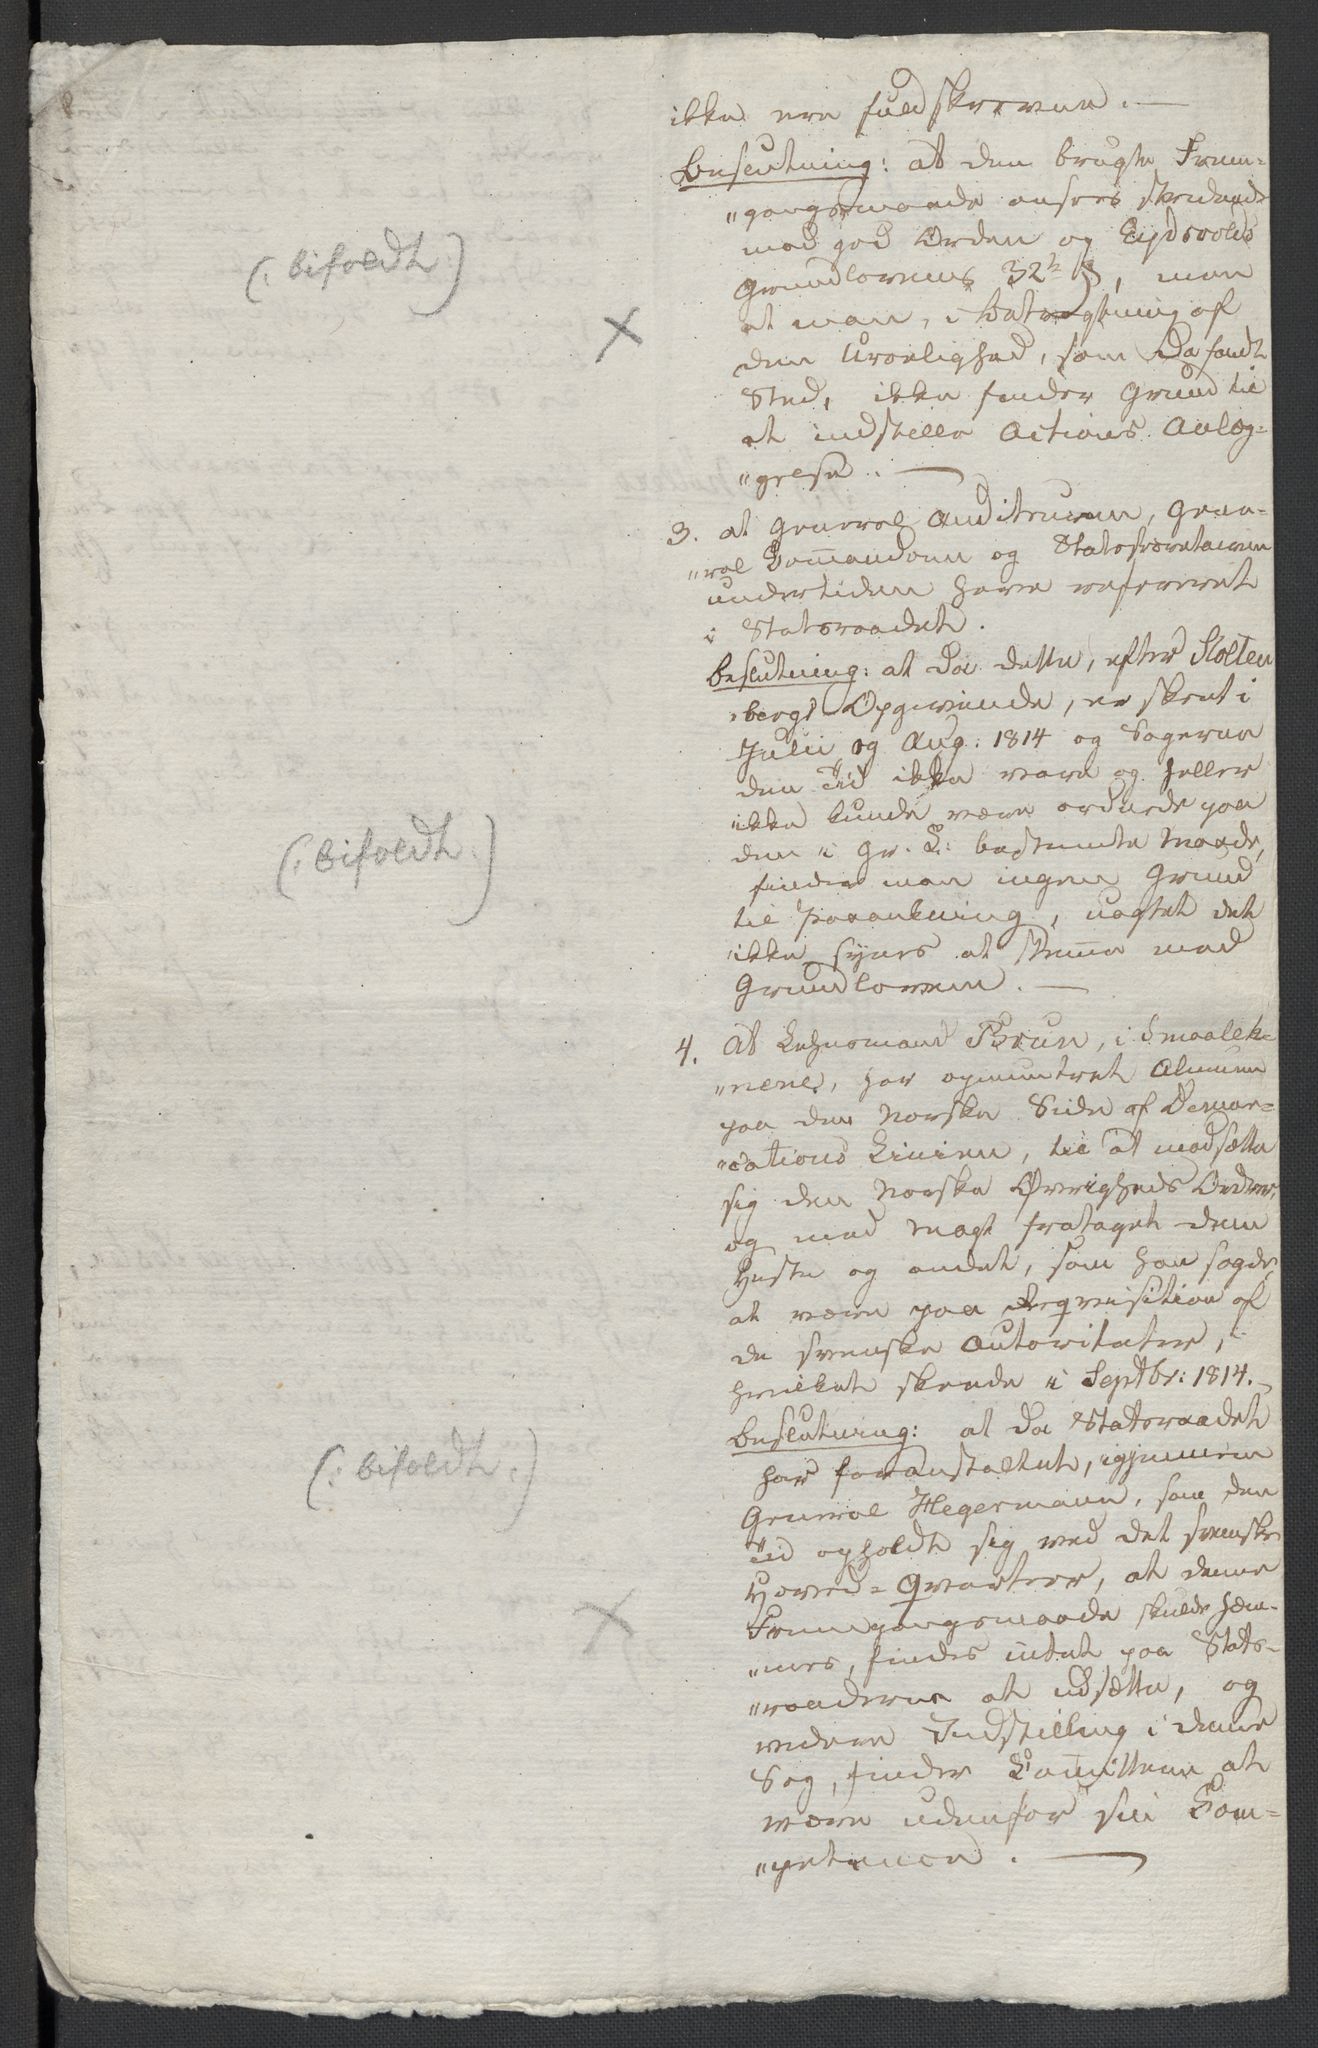 ikke ere fuldskrevne. —
Beslutning: at den brugte Frem-
"gangsmaade ansees stridende
mod god Orden og Eidsvolds
Grundlovens 32te §, men
at man, i Betragtning af
den Uroelighed, som da fandt
Sted, ikke finder Grund til
at indstille Actions Anlæg-
"gelse. —
(: bifaldt :)
3. at General Auditeuren, Gene-
"ral Commandoen og Statssecretairen
undertiden have refereret
i Statsraadet.
Beslutning: at da dette, efter Stolten
"bergs Opgivende, er skeet i
Julii og Aug: 1814 og Sagerne
den Tid ikke vare og heller
ikke kunde være ordnede paa
den i Gr. L: bestemte Maade,
finder man ingen Grund
til Paaankning, uagtet det
ikke synes at stemme med
Grundloven. —
(: bifaldt :)
4. At Lehnsmand Brun, i Smaaleh-
"nene, har opmuntret Almuen
paa den Norske Side af Demar-
"cations Linien, til at modsætte
sig den Norske Øvrigheds Ordrer,
og med Magt frataget dem
Heste og andet, som han sagde
at være paa Reqvisition af
de svenske Autoriteter,
hvilket skeede i Septbr: 1814. —
Beslutning: at da Statsraadet
har foranstaltet, igjennem
General Hegermann, som den
Tid opholdt sig ved det svenske
Hoved-Qvarteer, at denne
Fremgangsmaade skulde hæm-
"mes, findes intet paa Stats-
"raaderne at udsætte, og
videre Indstilling i denne
Sag, finder Comitteen at
være udenfor sin Com-
"petence. —
(: bifaldt :)